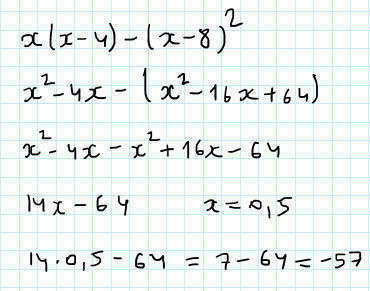 x(x-4)-(x-8)²
x²-4x-(x²-16x+64)
x²-4x-x²+16x-64
14x-64 x=0,5
14·0,5-64=7-64=-57